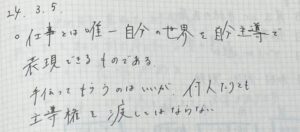 24. 3. 5.
○ 仕事とは唯一自分の世界を自分主導で
表現できるものである.
手伝ってもらうのはいいが、何人たりとも
主導権を渡してはならない.